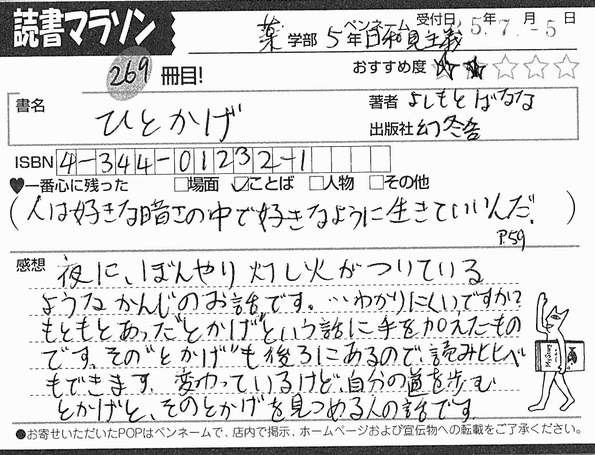 読書マラソン
薬 学部 5年 ペンネーム 日和見主義 受付日 5.年7.月-5日
269 冊目!
おすすめ度 ★★☆☆☆
書名 ひとかげ
著者 よしもとばなな
出版社 幻冬舎
ISBN 4-344-01232-1
♥一番心に残った □場面 ☑ことば □人物 □その他
(人は好きな暗さの中で好きなように生きていいんだ。)
P59
感想 夜に、ぼんやり灯し火がついている
ようなかんじのお話です。…わかりにくいですか?
もともとあった"とかげ"という話に手を加えたもの
です。その"とかげ"も後ろにあるので、読みヒヒべ
もできます。変わっているけど、自分の道を歩む
とかげと、そのとかげを見つめる人の話です。
●お寄せいただいたPOPはペンネームで、店内で掲示、ホームページおよび宣伝物への転載をご了承ください。